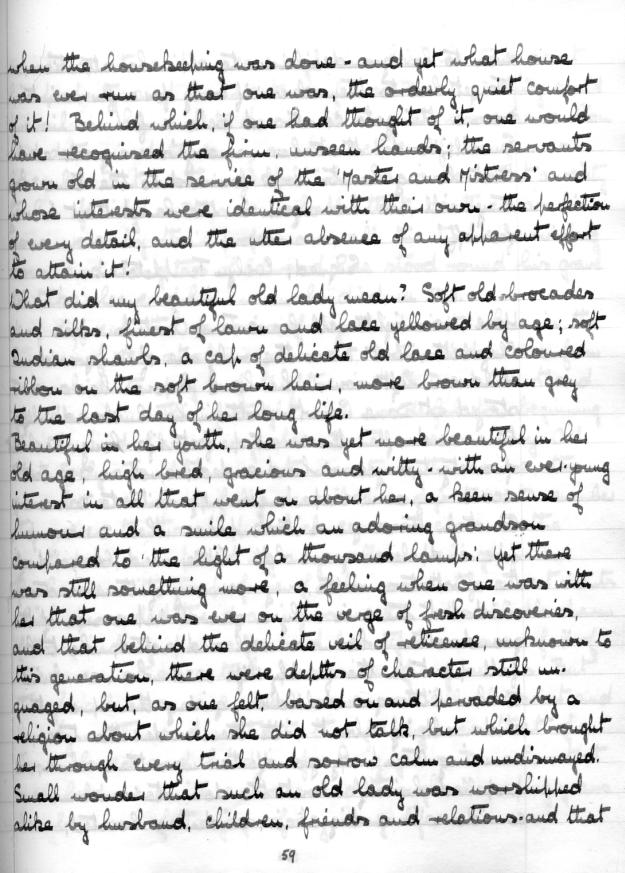 when the housekeeping was done - and yet what house
was ever run as that one was, the orderly quiet comfort
of it! Behind which, if one had thought of it, one would
have recognised the firm, unseen hands; the servants
grown old in the service of the 'Master and Mistress' and
whose interests were identical with their own - the perfection
of every detail, and the utter absence of any apparent effort
to attain it!
What did my beautiful old lady mean? Soft old brocades
and silks, finest of lawn and lace yellowed by age; soft
Indian shawls, a cap of delicate old lace and coloured
ribbon on the soft brown hair, more brown than grey
to the last day of her long life.
Beautiful in her youth, she was yet more beautiful in her
old age, high bred, gracious and witty - with an ever-young
interest in all that went on about her, a keen sense of
humour and a smile which an adoring grandson
compared to 'the light of a thousand lamps'; yet there
was still something more, a feeling when one was with
her that one was ever on the verge of fresh discoveries,
and that behind the delicate veil of reticence, unknown to
this generation, there were depths of character still un-
guaged, but, as one felt, based on and pervaded by a
religion about which she did not talk, but which brought
her through every trial and sorrow calm and undismayed.
Small wonder that such an old lady was worshipped
alike by husband, children, friends and relations - and that
59